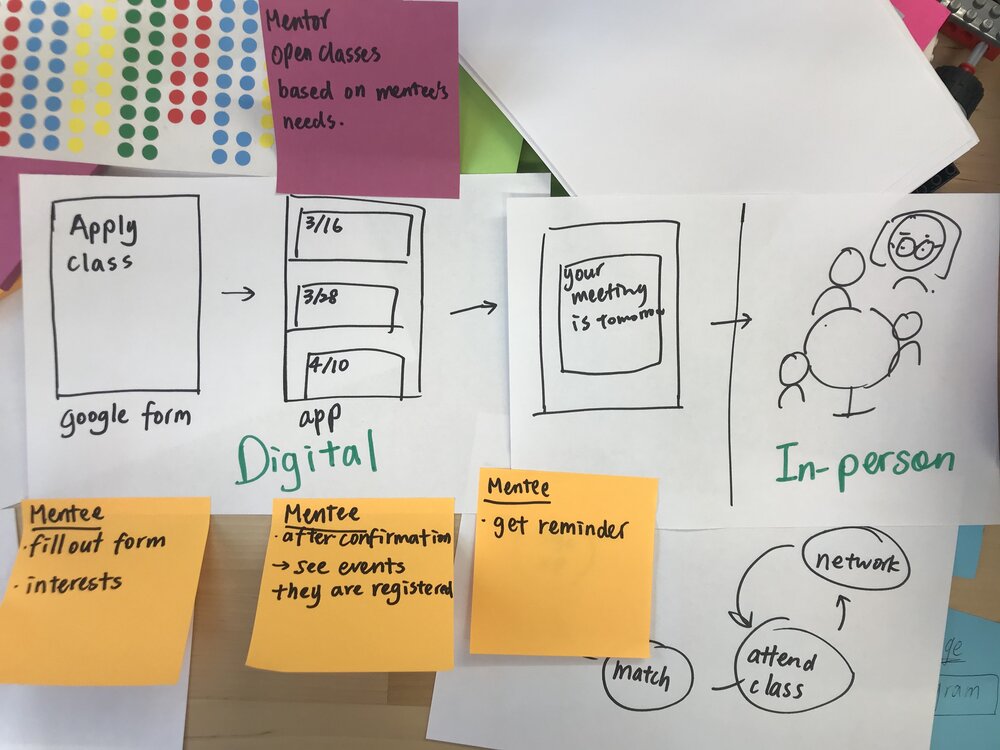 Mentor
open classes
based on mentee's
needs.
Apply
class
google form
3/16
3/28
4/10
app
Digital
your
meeting
is tomorrow
In-person
Mentee
· fill out form
· interests
Mentee
· after confirmation
→ see events
they are registered
Mentee
· get reminder
network
attend
class
match